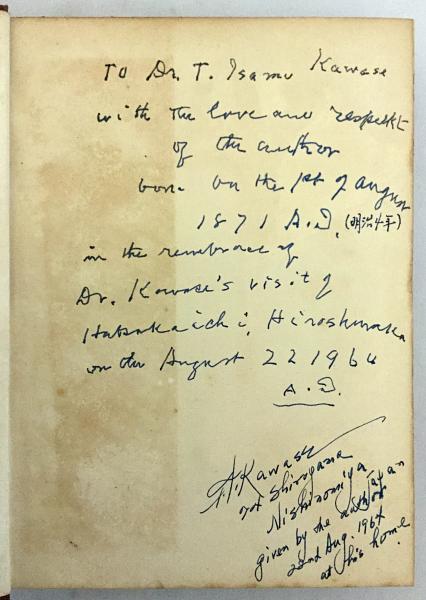 To Dr. T. Isamu Kawase
with the love and respekt
of the author
born on the 1st of August
1871 A.D. (明治4年)
in the rembrace of
Dr. Kawase's visit of
Hatsukaichi, Hiroshimaka
on the August 22 1964
A.D.
Kawase
Shiroyama
Nishinomiya
Japan
given by the author
22nd Aug. 1964
at his home